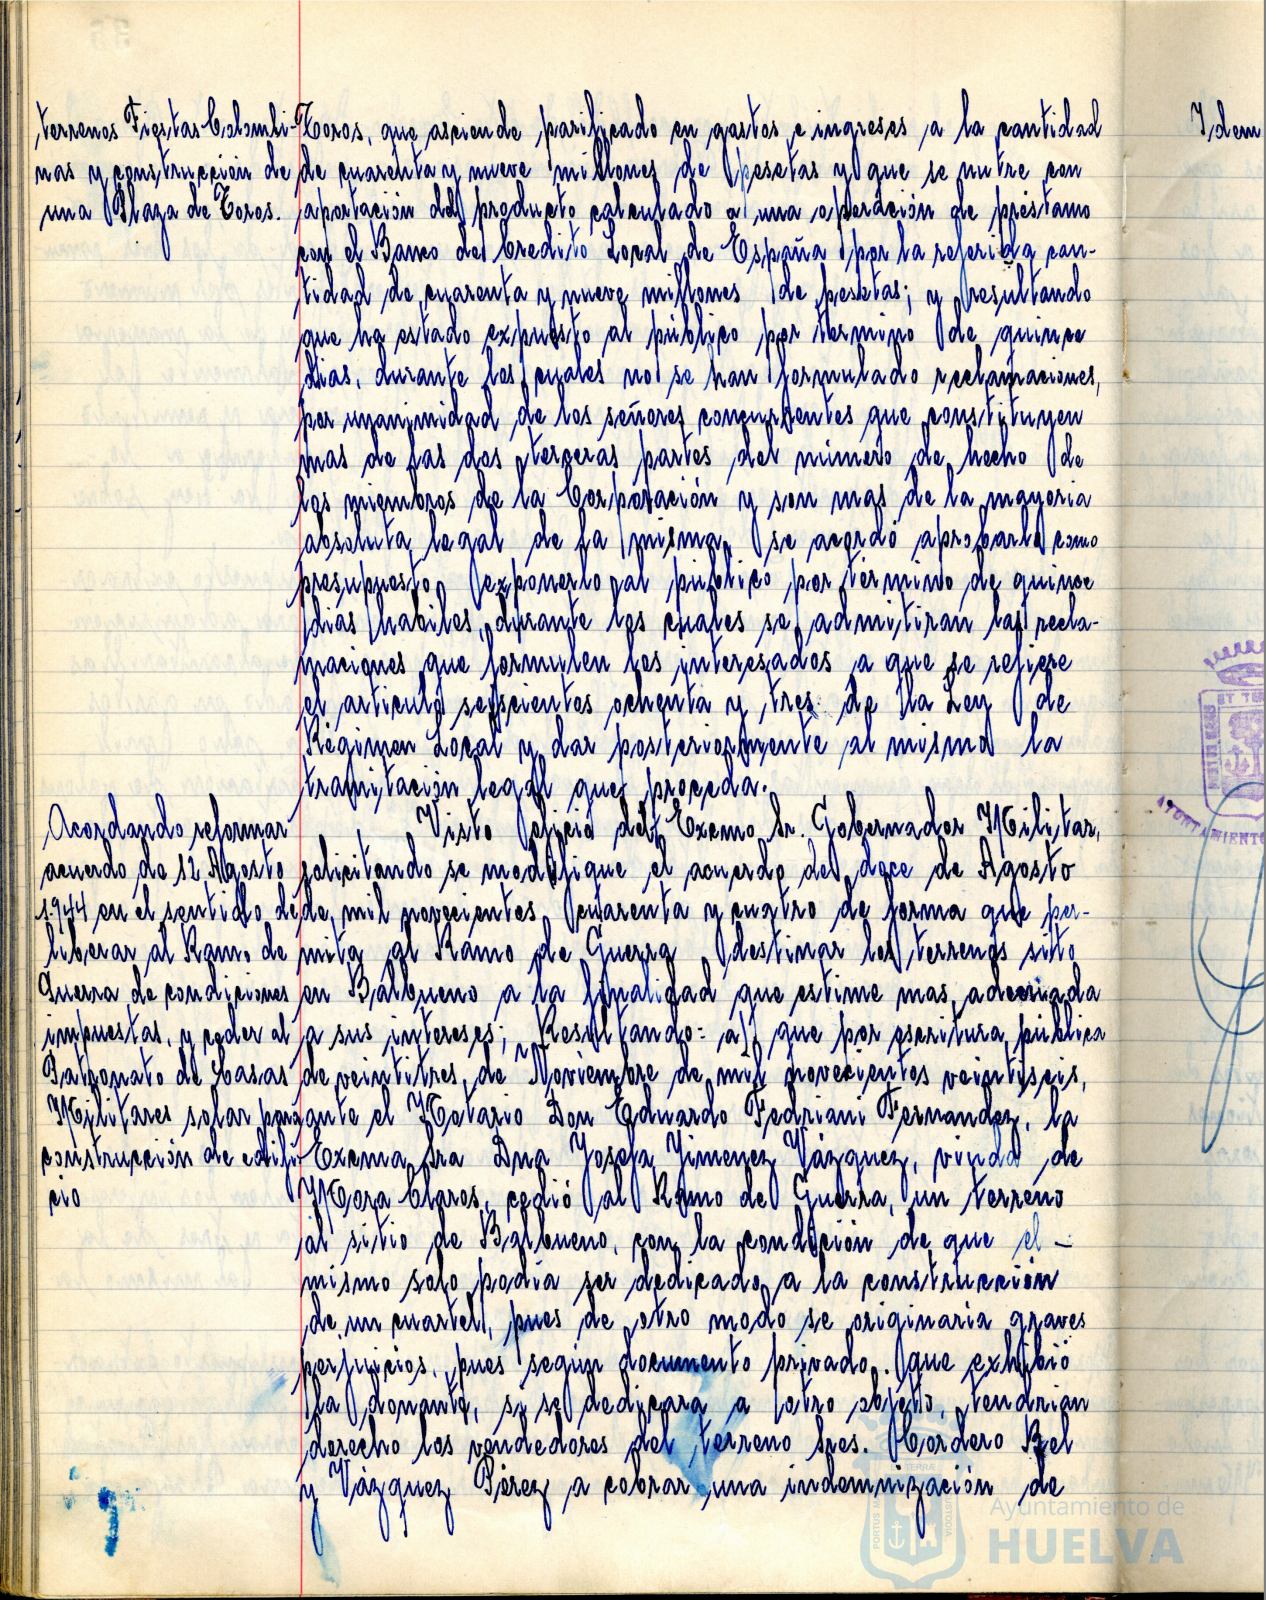 terrenos Fiestas Colombi-
nas y construcción de
una Plaza de Toros.
Toros, que asciende parificado en gastos e ingresos a la cantidad
de cuarenta y nueve millones de pesetas y que se nutre con
aportación del producto calculado a una operación de préstamo
con el Banco del Credito Local de España por la referida can-
tidad de cuarenta y nueve millones de pesetas; y resultando
que ha estado expuesto al público por termino de quince
dias, durante los cuales no se han formulado reclamaciones,
por unanimidad de los señores concurrentes que constituyen
mas de las dos terceras partes del número de hecho de
los miembros de la Corporación y son mas de la mayoria
absoluta legal de la misma, se acordó aprobarlo como
presupuesto, exponerlo al público por término de quince
dias habiles, durante los cuales se admitiran las recla-
maciones que formulen los interesados a que se refiere
el articulo seiscientos ochenta y tres de la Ley de
Régimen Local y dar posteriormente al mismo la
tramitación legal que proceda.
Acordando reformar
acuerdo de 12 Agosto
1.944 en el sentido de
liberar al Ramo de
Guerra de condiciones
impuestas, y ceder al
Patronato de Casas
Militares solar para
construcción de edifi-
cio
Visto oficio del Excmo. Sr. Gobernador Militar,
solicitando se modifique el acuerdo del doce de Agosto
de mil novecientos cuarenta y cuatro de forma que per-
mita al Ramo de Guerra destinar los terrenos sito
en Balbueno a la finalidad que estime mas adecuada
a sus intereses; Resultando: a)) que por escritura pública
de veintitres de Noviembre de mil novecientos veintiseis,
ante el Notario Don Eduardo Fedriani Fernandez, la
Excma Sra Dna Josefa Jimenez Vázquez, viuda de
Mora Claros, cedió al Ramo de Guerra, un terreno
al sitio de Balbueno, con la condición de que el -
mismo solo podía ser dedicado a la construcción
de un cuartel, pues de otro modo se originaria graves
perjuicios, pues según documento privado, que exhibió
la donante, si se dedicara a otro objeto, tendrian
derecho los vendedores del terreno Sres. Cordero Bel
y Vázquez Pérez a cobrar una indemnización de
Idem
AYUNTAMIENTO
Ayuntamiento de
HUELVA